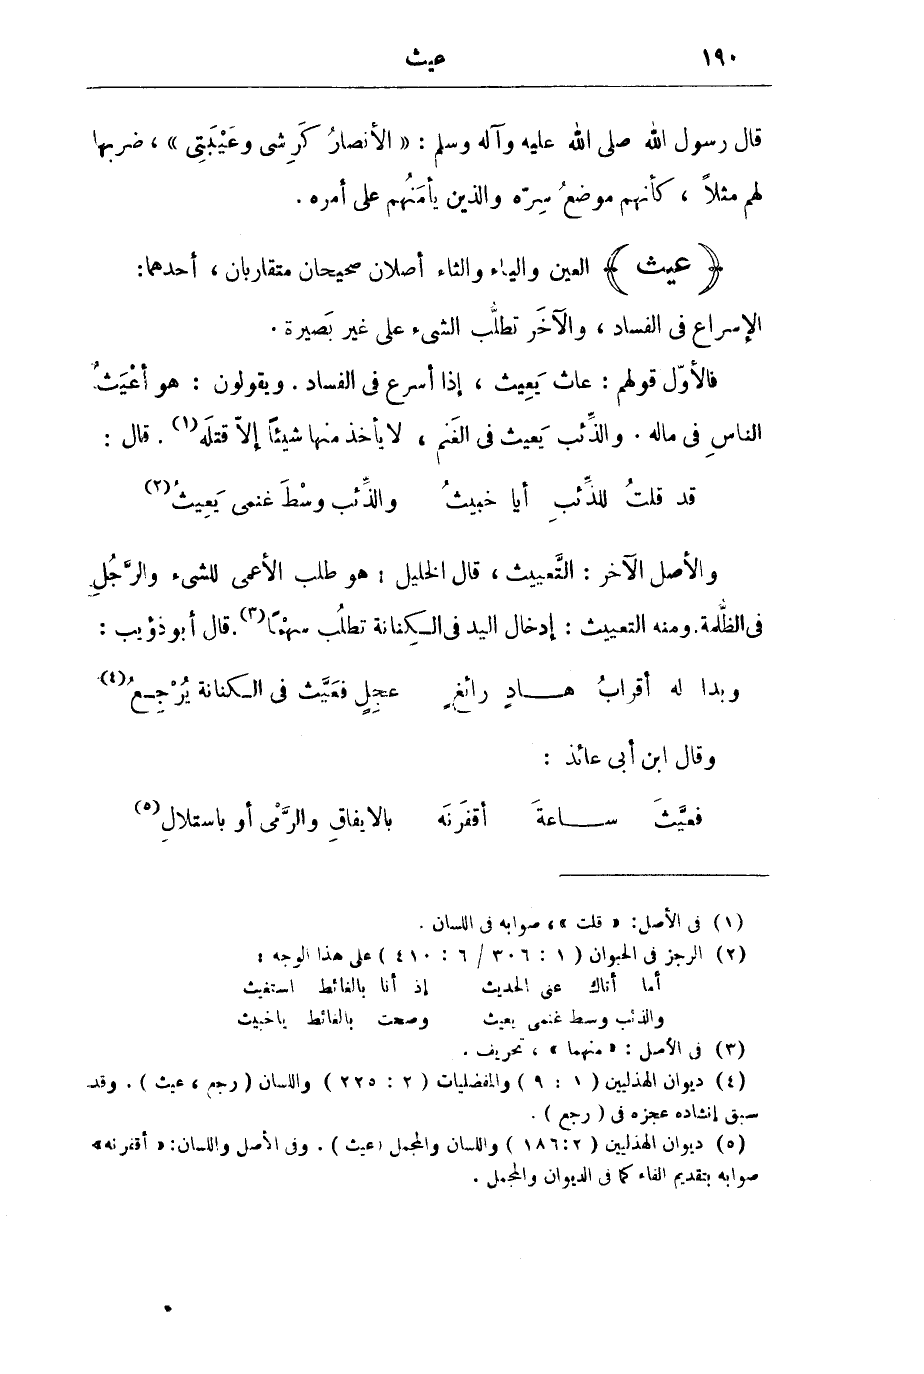 ١٩٠
عيث
قال رسول الله صلى الله عليه وآله وسلم : « الأنصارُ كَرِشى وعَيْبَتِى » ، ضربها
لهم مثلاً ، كأنهم موضعُ سِرّه والذين يأمَنُهم على أمره .
﴿ عيث ﴾ العين والياء والثاء أصلان صحيحان متقاربان ، أحدهما:
الإسراع فى الفساد ، والآخَر تطلُّب الشىء على غير بَصيرة .
فالأوّل قولهم : عاث يَعِيث ، إذا أسرع فى الفساد . ويقولون : هو أعْيَثُ
الناسِ فى ماله . والذِّئب يَعيث فى الغَنم ، لا يأخذ منها شيئًا إلاّ قتلَه(١) . قال :
قد قلتُ للذِّئبِ أيا خبيثُ والذِّئب وسْطَ غنمى يَعِيثُ(٢)
والأصل الآخر : التَّعييث ، قال الخليل : هو طلب الأعمى للشىء والرَّجُلِ
فى الظُّلمة . ومنه التعييث : إدخال اليد فى الكِنانة تطلُب سهمًا(٣) . قال أبو ذؤيب :
وبدا له أقرابُ هادٍ رائغٍ عجِلٍ فعَيَّث فى الكنانة يُرْجِعُ(٤)
وقال ابن أبى عائذ :
فعيَّثَ ساعةَ أقفَرنَه بالايفاقِ والرَّمْى أو باستلالِ(٥)
(١) فى الأصل: « قلت »، صوابه فى اللسان .
(٢) الرجز فى الحيوان ( ١ : ٣٠٦ / ٦ : ٤١٠ ) على هذا الوجه :
أما أتاك عنى الحديث إذ أنا بالغائط استغيث
والذئب وسط غنمى يعيث وصحت بالغائط ياخبيث
(٣) فى الأصل : « منهما » ، تحريف .
(٤) ديوان الهذليين ( ١ : ٩ ) والمفضليات ( ٢ : ٢٢٥ ) واللسان ( رجم ، عيث ) . وقد
سبق إنشاده عجزه فى ( رجع ) .
(٥) ديوان الهذليين ( ٢ : ١٨٦ ) واللسان والمجمل ( عيث ) . وفى الأصل واللسان: « أقفرنه »
صوابه بتقديم الفاء كما فى الديوان والمجمل .